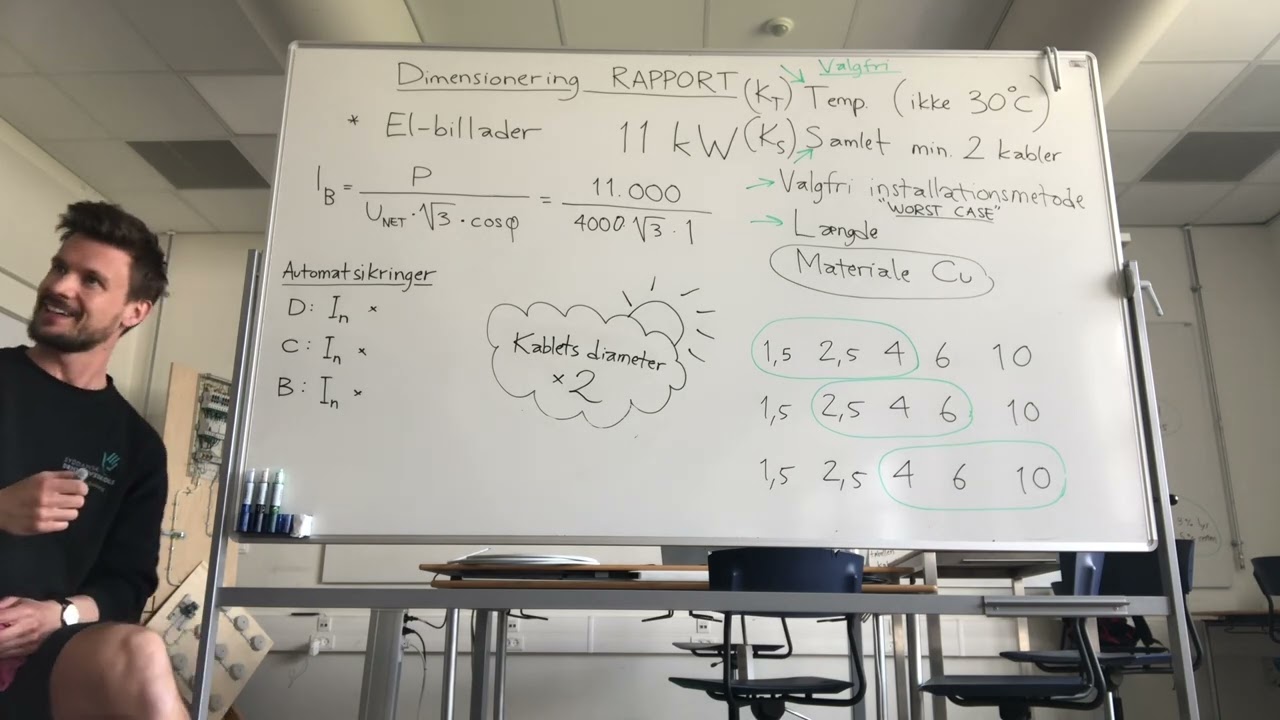 Valgfri
Dimensionering RAPPORT (K_T) Temp. (ikke 30°C)
* El-billader 11 kW (K_S) Samlet min. 2 kabler
I_B = P / (U_NET · √3 · cosφ) = 11.000 / (4000 · √3 · 1)
→ Valgfri installationsmetode
"WORST CASE"
→ Længde
Materiale Cu
Automatsikringer
D: I_n ×
C: I_n ×
B: I_n ×
Kablets diameter
× 2
1,5 2,5 4 6 10
1,5 2,5 4 6 10
1,5 2,5 4 6 10